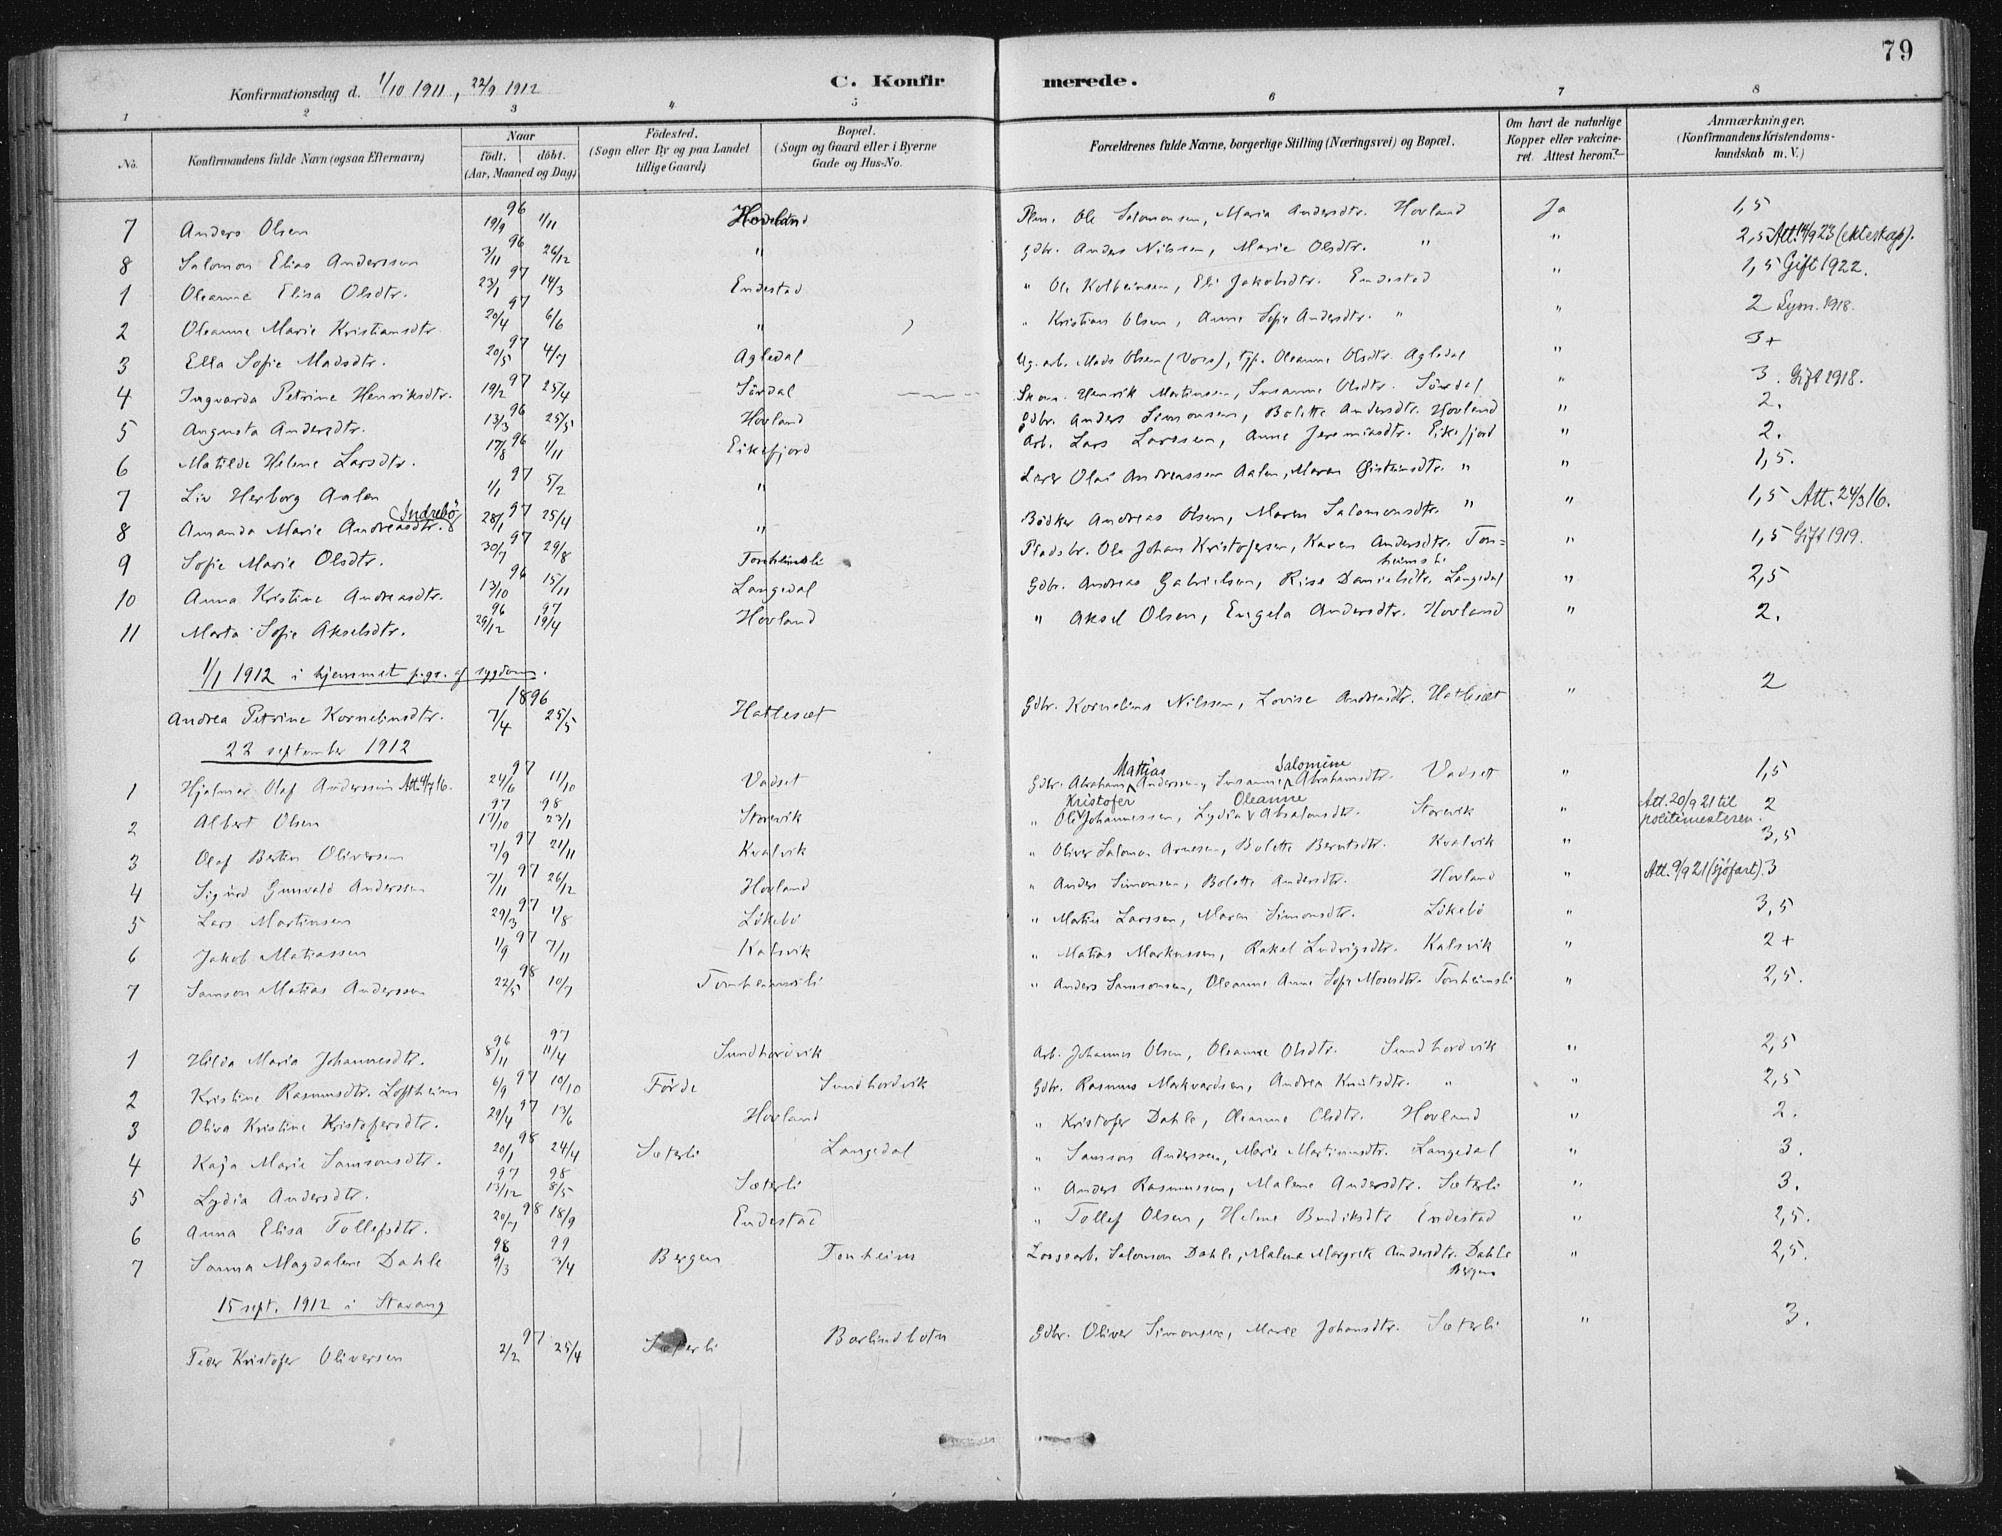 79
Konfirmationsdag d. 1/10 1911, 22/9 1912 C. Konfir merede.
1 2 3 4 5 6 7 8
No. Konfirmandens fulde Navn (ogsaa Efternavn) Naar födt. döbt. (Aar, Maaned og Dag) Födested. (Sogn eller By og paa Landet tillige Gaard) Bopæl. (Sogn og Gaard eller i Byerne Gade og Hus-No. Forældrenes fulde Navne, borgerlige Stilling (Næringsvei) og Bopæl. Om havt de naturlige Kopper eller vakcineret. Attest herom? Anmærkninger. (Konfirmandens Kristendomskundskab m. V.)
7 Anders Olsen 96 19/9 1/11 Hovland Ole Salomonsen, Maria Andersdtr. Hovland Ja 1,5
8 Salomon Elias Anderssen 96 3/11 26/12 " Gdbr. Anders Nilssen, Marie Olsdtr. " " 2,5 Att. 14/9 23 (ekteskap).
1 Oleanne Elisa Olsdtr. 97 23/1 14/3 Endestad " Ole Kolbeinsen, Eli Jakobsdtr. Endestad " 1,5 Gift 1922.
2 Oleanne Marie Kristiansdtr. 97 20/4 6/6 " " Kristian Olsen, Anne Sofie Andersdtr. " " 2 Lysn. 1918.
3 Ella Sofie Madsdtr. 97 20/5 4/7 Agledal Ug. arb. Mads Olsen (Voss), tjp. Oleanne Olsdtr. Agledal " 3+
4 Ingvarda Petrine Henriksdtr. 97 19/2 25/4 Sördal Skom. Henrik Martinsen, Susanne Olsdtr. Sördal " 3. Gift 1918.
5 Augusta Andersdtr. 96 13/3 25/5 Hovland Gdbr. Anders Simonsen, Bolette Andersdtr. Hovland " 2.
6 Matilde Helene Larsdtr. 96 17/8 1/11 Eikefjord Arb. Lars Larssen, Anne Jeremiasdtr. Eikefjord " 2.
7 Liv Herborg Aalen 97 1/1 5/2 " Lærer Olai Andreassen Aalen, Maren Kristensdtr. " " 1,5.
8 Amanda Marie Andreasdtr. Indrebö 97 28/1 25/4 " Bödker Andreas Olsen, Maren Salomonsdtr. " " 1,5 Att. 24/3 16.
9 Sofie Marie Olsdtr. 97 30/7 29/8 Tonheimsli Pladsbr. Ole Johan Kristofersen, Karen Andersdtr. Ton=heimsli " 1,5 Gift 1919.
10 Anna Kristine Andreasdtr. 96 13/10 15/11 Langedal Gdbr. Andreas Gabrielsen, Rise Danielsdtr. Langedal " 2,5
11 Marta Sofie Akselsdtr. 96 29/12 97 19/4 Hovland " Aksel Olsen, Engela Andersdtr. Hovland " 2.
1/1 1912 i hjemmet p.gr. af sygdom.
Andrea Petrine Korneliusdtr. 1896 7/4 25/5 Hatleset Gdbr. Kornelius Nilssen, Lovise Andreasdtr. Hatleset " 2
22 september 1912
1 Hjalmar Olaf Anderssen Att. 4/7 16. 97 24/6 11/10 Vadset Gdbr. Abraham Mattias Andersen, Susanne Salomine Abrahamsdtr. Vadset " 1,5
2 Albert Olsen 97 17/10 98 23/1 Storevik " Ole Kristofer Johannessen, Lydia Oleanne Absalonsdtr. Storevik " Att. 20/9 21 til politimesteren. 2
3 Olaf Bertin Oliversen 97 7/9 21/11 Kvalvik " Oliver Salomon Arnesen, Bolette Berntsdtr. Kvalvik " 3,5
4 Sigurd Gunvald Anderssen 97 7/11 26/12 Hovland " Anders Simonsen, Bolette Andersdtr. Hovland " Att. 9/9 21 (sjöfart). 3
5 Lars Martinsen 97 29/3 1/8 Lökebö " Martin Larssen, Maren Simonsdtr. Lökebö " 3,5
6 Jakob Matiassen 97 1/9 7/11 Kalsvik " Matias Markussen, Rakel Ludvigsdtr. Kalsvik " 2+
7 Samson Matias Anderssen 98 22/5 10/7 Tonheimsli " Anders Samsonsen, Oleanne Anne Sofie Monsdtr. Tonheimsli " 2,5.
1 Hilda Maria Johannesdtr. 96 8/11 97 11/4 Sundhordvik Arb. Johannes Olsen, Oleanne Olsdtr. Sundhordvik " 2,5
2 Kristine Rasmusdtr. Loftheim 97 6/9 10/10 Förde Sundhordvik Gdbr. Rasmus Markvardsen, Andrea Knutsdtr. " " 2,5
3 Oliva Kristine Kristofersdtr. 97 29/4 13/6 Hovland " Kristofer Dahle, Oleanne Olsdtr. Hovland " 2.
4 Kaja Marie Samsonsdtr. 98 20/1 24/4 Sæterli Langedal " Samson Anderssen, Marie Martinusdtr. Langedal " 3.
5 Lydia Andersdtr. 97 13/12 98 8/5 Sæterli " Anders Rasmussen, Malene Andersdtr. Sæterli " 3.
6 Anna Elisa Tollefsdtr. 98 20/7 18/9 Endestad " Tollef Olsen, Helene Bendiksdtr. Endestad " 2,5.
7 Sanna Magdalene Dahle 98 9/3 99 3/4 Bergen Tonheim Lossearb. Salomon Dahle, Malena Margrete Andersdtr. Dahle Bergen " 2,5.
15 sept. 1912 i Stavang
Peder Kristofer Oliversen 97 2/2 25/4 Sæterli Barlindbotn Gdbr. Oliver Simonsen, Marie Johansdtr. Sæterli " 3.